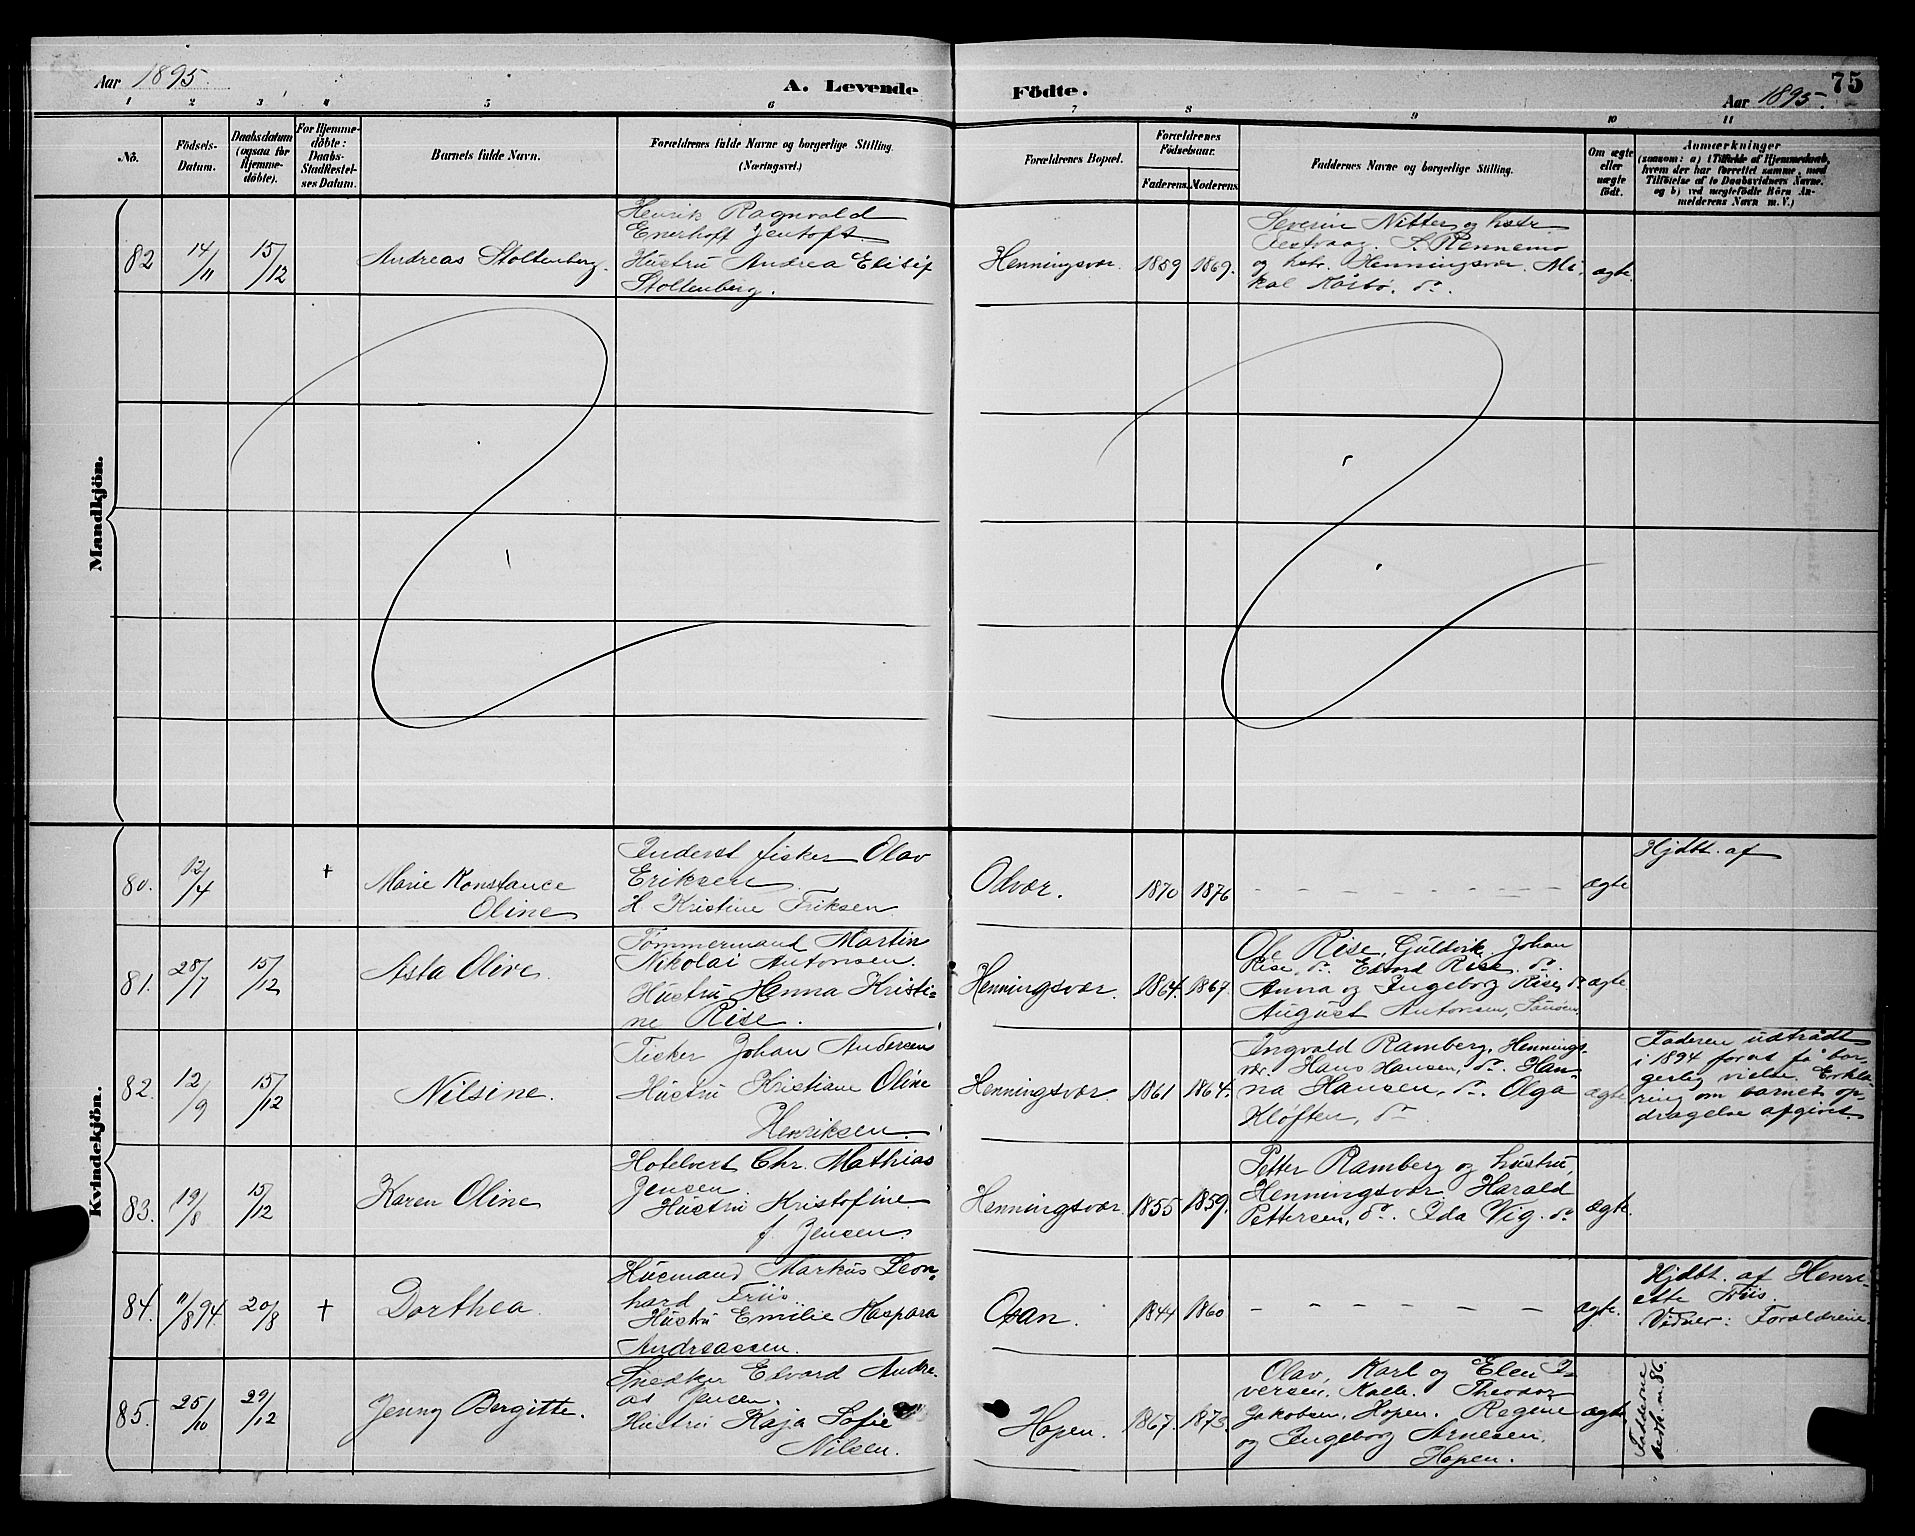 Aar 1895.
A. Levende
Födte.
75
Aar 1895.
1 2 3 4 5 6 7 8 9 10 11
No.
Födsels-
Datum.
Daabsdatum
(ogsaa for
Hjemme-
döbte).
For Hjemme-
döbte:
Daabs-
Stadfæstel-
ses Datum.
Barnets fulde Navn.
Forældrenes fulde Navne og borgerlige Stilling.
(Næringsvei.)
Forældrenes Bopæl.
Forældrenes
Födselsaar.
Faderens.
Moderens.
Faddernes Navne og borgerlige Stilling.
Om ægte
eller
uægte
födt.
Anmærkninger
(saasom: a) i Tilfælde af Hjemmedaab,
hvem der har forrettet samme, med
Tilföielse af to Daabsvidners Navne,
og b) ved uægtefödte Börn An-
melderens Navn m. V.)
Mandkjön.
82
14/11
15/12
Andreas Stoltenberg.
Henrik Ragnvald
Enerhoff Jentoft.
Hustru Andrea Elisif
Stoltenberg.
Henningsvær.
1859
1869.
Severin Nitter og hstr.
Festvaag. S. Rennemo
og hstr. Henningsvær. Mi-
kal Kårbø. do.
ægte.
Kvindekjön.
80.
12/4
+
Marie Konstance
Oline
Inderst fisker Olav
Eriksen
H. Kristine Eriksen
Odvær.
1870
1876
– – – – – – – –
ægte
Hjdbt. af
81.
28/7
15/12
Asta Olive.
Tømmermand Martin
Nikolai Antonsen.
Hustru Hanna Kristi-
ne Rise.
Henningsvær.
1864.
1867.
Ole Rise, Guldvik, Johan
Rise, do. Edvard Rise, do.
Anna og Ingeborg Rise, do
August Antonsen,
ægte.
82.
12/9
15/12
Nilsine.
Fisker Johan Andersen
Hustru Kristiane Oline
Henriksen.
Henningsvær
1861
1864.
Ingvald Ramberg, Hennings-
vær. Hans Hansen, do. Han-
na Hansen, do. Olga
Kløften, do
ægte
Faderen udtrådt
i 1894 forat få bor-
gerlig vielse. Erklæ-
ring om barnets op-
dragelse afgivet.
83.
19/8
15/12
Karen Oline
Hotelvert Chr. Mathias
Jensen
Hustru Kristofine
f. Jensen.
Henningsvær.
1855
1859.
Petter Ramberg og hustru,
Henningsvær. Harald
Pettersen, do. Ida Vig. do
ægte.
84.
11/8 94
20/8
+
Dorthea.
Husmand Markus Leon-
hard Friis.
Hustru Emilie Kaspara
Andreassen.
Osan.
1844
1860
– – – – – – –
ægte.
Hjdbt. af Henri-
ette Friis.
Vidner: Forældrene.
85.
25/10
29/12
Jenny Bergitte.
Snedker Edvard Andre-
as Jensen.
Hustru Kaja Sofie
Nilsen.
Hopen.
1867.
1873.
Olav, Karl og Elen I-
versen, Kalle. Theodor
Jakobsen, Hopen. Regine
og Ingeborg Arnesen
Hopen.
ægte
Fadderne